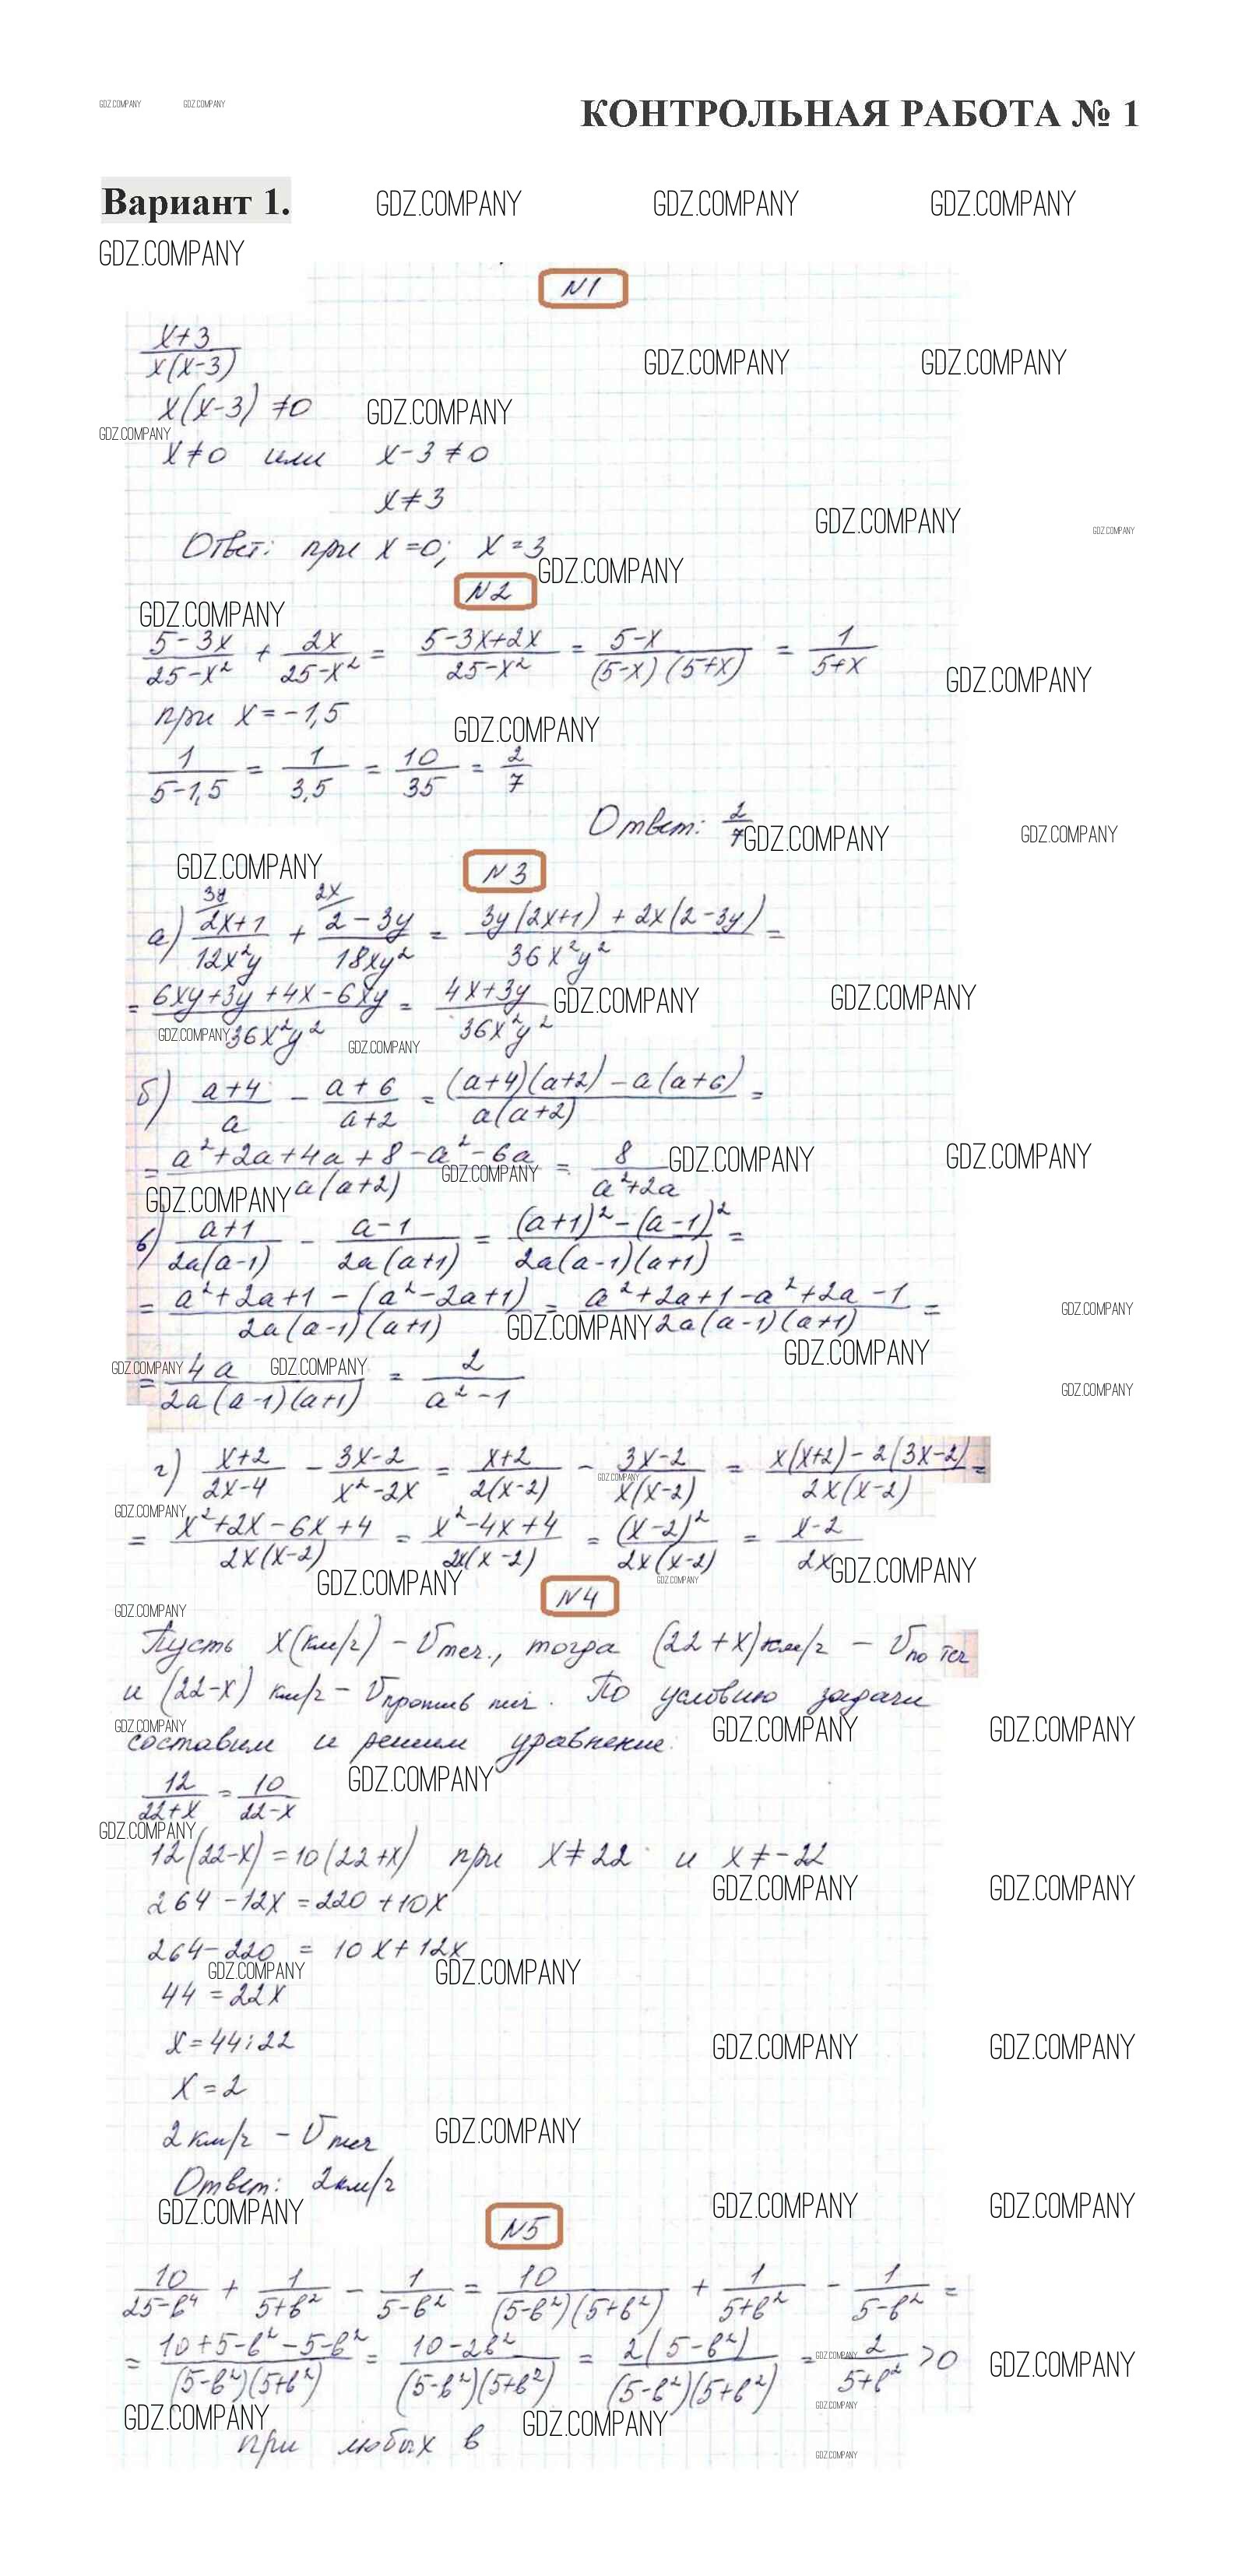 GDZ.COMPANY GDZ.COMPANY
КОНТРОЛЬНАЯ РАБОТА № 1
Вариант 1. GDZ.COMPANY GDZ.COMPANY GDZ.COMPANY
GDZ.COMPANY
N1
(x+3)/(x(x-3)) GDZ.COMPANY GDZ.COMPANY
x(x-3) ≠0 GDZ.COMPANY
GDZ.COMPANY
x≠0 или x-3≠0
x≠3
GDZ.COMPANY GDZ.COMPANY
Ответ: при x=0; x=3
GDZ.COMPANY
N2
GDZ.COMPANY
(5-3x)/(25-x²) + 2x/(25-x²) = (5-3x+2x)/(25-x²) = (5-x)/((5-x)(5+x)) = 1/(5+x)
GDZ.COMPANY
при x=-1,5
GDZ.COMPANY
1/(5-1,5) = 1/3,5 = 10/35 = 2/7
Ответ: 2/7 GDZ.COMPANY GDZ.COMPANY
GDZ.COMPANY
N3
3y 2x
а) (2x+1)/(12x²y) + (2-3y)/(18xy²) = (3y(2x+1)+2x(2-3y))/(36x²y²) =
= (6xy+3y+4x-6xy)/(36x²y²) = (4x+3y)/(36x²y²) GDZ.COMPANY GDZ.COMPANY
GDZ.COMPANY GDZ.COMPANY
б) (a+4)/a - (a+6)/(a+2) = ((a+4)(a+2)-a(a+6))/(a(a+2)) =
= (a²+2a+4a+8-a²-6a)/(a(a+2)) = 8/(a²+2a) GDZ.COMPANY GDZ.COMPANY
GDZ.COMPANY
GDZ.COMPANY
в) (a+1)/(2a(a-1)) - (a-1)/(2a(a+1)) = ((a+1)²-(a-1)²)/(2a(a-1)(a+1)) =
= (a²+2a+1-(a²-2a+1))/(2a(a-1)(a+1)) = (a²+2a+1-a²+2a-1)/(2a(a-1)(a+1)) = GDZ.COMPANY
GDZ.COMPANY
GDZ.COMPANY
GDZ.COMPANY GDZ.COMPANY
= 4a/(2a(a-1)(a+1)) = 2/(a²-1) GDZ.COMPANY
г) (x+2)/(2x-4) - (3x-2)/(x²-2x) = (x+2)/(2(x-2)) - (3x-2)/(x(x-2)) = (x(x+2)-2(3x-2))/(2x(x-2)) =
GDZ.COMPANY
GDZ.COMPANY
= (x²+2x-6x+4)/(2x(x-2)) = (x²-4x+4)/(2x(x-2)) = (x-2)²/(2x(x-2)) = (x-2)/2x GDZ.COMPANY
GDZ.COMPANY GDZ.COMPANY
N4
GDZ.COMPANY
Пусть x(км/ч) - Vтеч., тогда (22+x)км/ч - Vпо теч
и (22-x) км/ч - Vпротив теч. По условию задачи
GDZ.COMPANY GDZ.COMPANY GDZ.COMPANY
составим и решим уравнение:
GDZ.COMPANY
12/(22+x) = 10/(22-x)
GDZ.COMPANY
12(22-x)=10(22+x) при x≠22 и x≠-22
GDZ.COMPANY GDZ.COMPANY
264-12x=220+10x
264-220 = 10x+12x
GDZ.COMPANY GDZ.COMPANY
44=22x
x=44:22
GDZ.COMPANY GDZ.COMPANY
x=2
2км/ч - Vтеч GDZ.COMPANY
Ответ: 2км/ч
GDZ.COMPANY GDZ.COMPANY GDZ.COMPANY
N5
10/(25-b⁴) + 1/(5+b²) - 1/(5-b²) = 10/((5-b²)(5+b²)) + 1/(5+b²) - 1/(5-b²) =
= (10+5-b²-5-b²)/((5-b²)(5+b²)) = (10-2b²)/((5-b²)(5+b²)) = 2(5-b²)/((5-b²)(5+b²)) = 2/(5+b²) >0 GDZ.COMPANY
GDZ.COMPANY
GDZ.COMPANY
GDZ.COMPANY GDZ.COMPANY
при любых b
GDZ.COMPANY